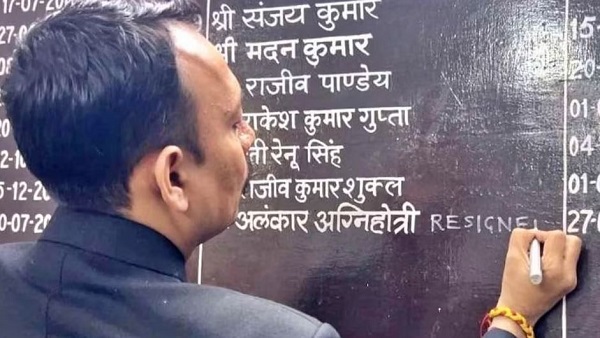 17-07-20 श्री संजय कुमार 15-
27-0 श्री मदन कुमार 20-
राजीव पाण्डेय 01-0
राकेश कुमार गुप्ता 04-
2-10 रेनू सिंह 01-0
5-12-20 राजीव कुमार शुक्ल
0-07-20 अलंकार अग्निहोत्री RESIGNE 27-0